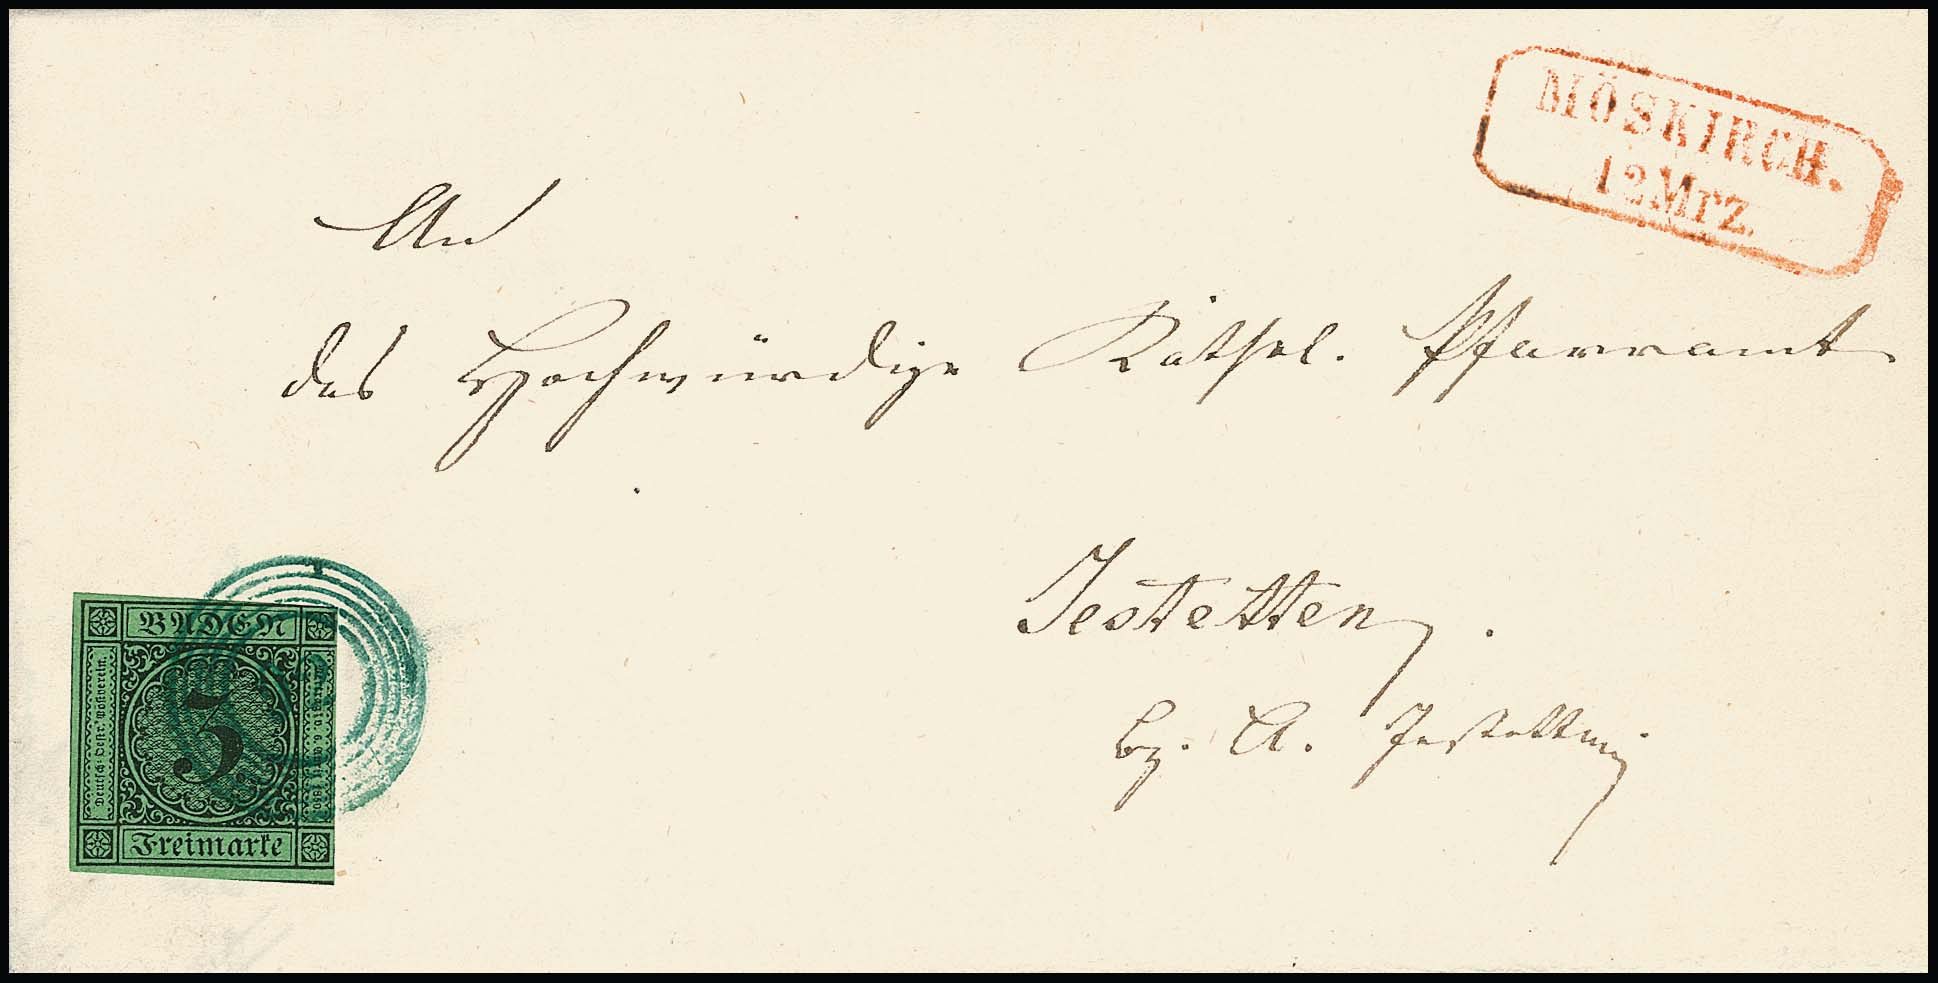 MÖSKIRCH.
12 Mrz.
An
das Hochwürdige Kathol. Pfarramt
Jestetten.
bz. A. Jestetten
BADEN
Deutsch-Oestr. Postverein.
3
Vertrag v. 6 April 1850.
Freimarke